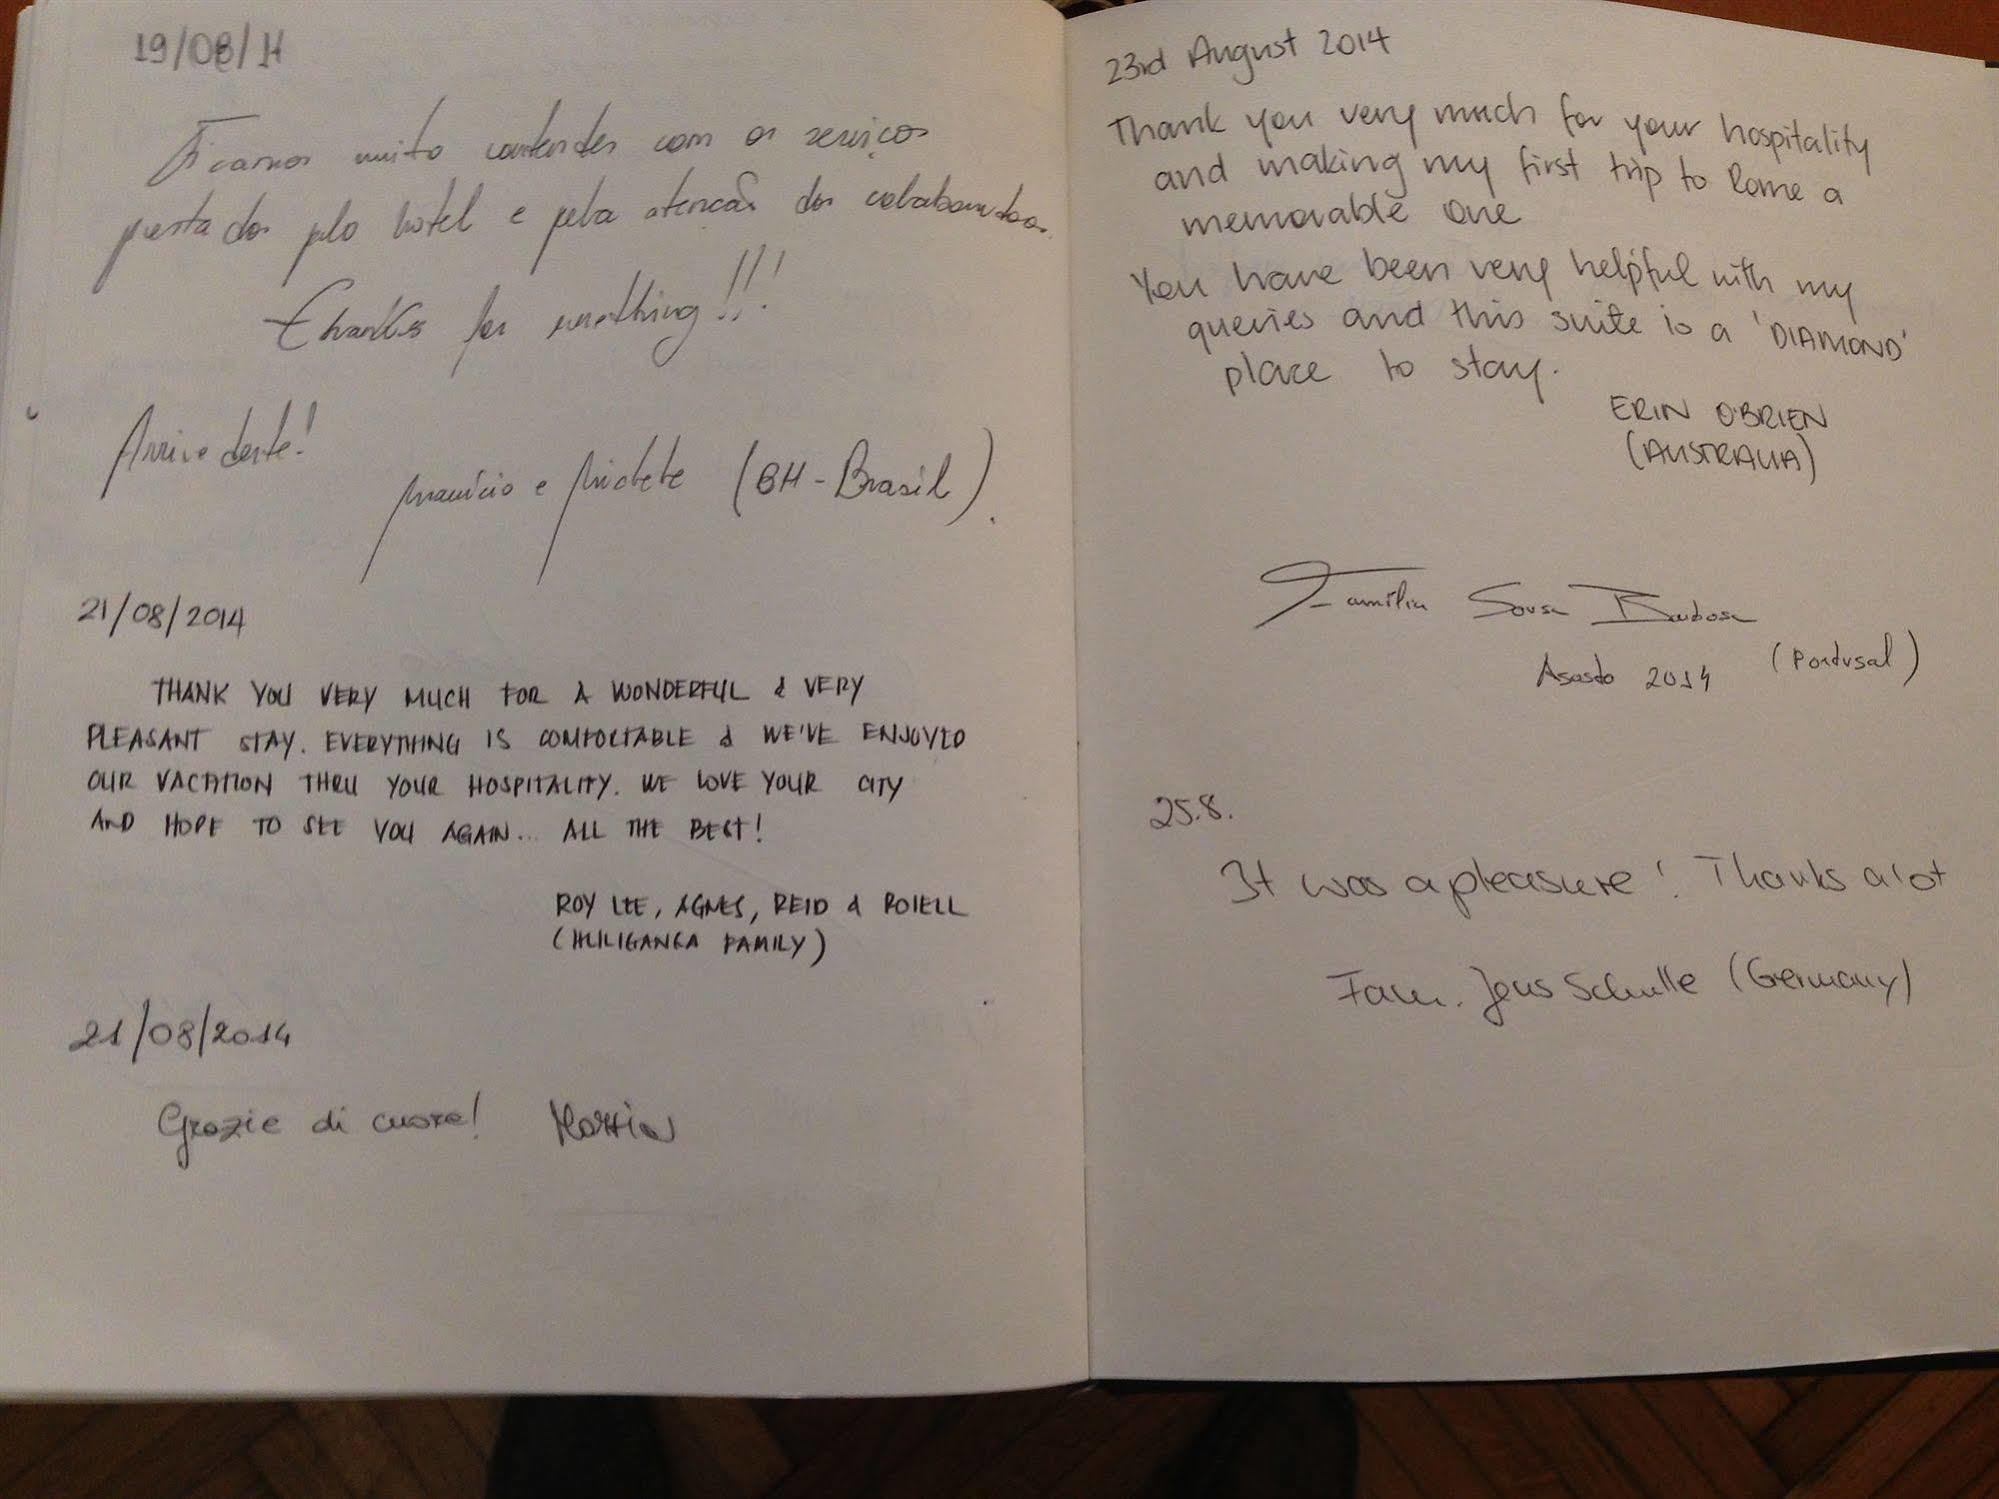 19/08/14
Ficamos muito contentes com os serviços
prestados pelo hotel e pela atenção dos colaboradores.
Thanks for everything!!!
Arrivederte!
Mauricio e (BH-Brasil).
21/08/2014
THANK YOU VERY MUCH FOR A WONDERFUL & VERY
PLEASANT STAY. EVERYTHING IS COMFORTABLE & WE'VE ENJOYED
OUR VACATION THRU YOUR HOSPITALITY. WE LOVE YOUR CITY
AND HOPE TO SEE YOU AGAIN... ALL THE BEST!
ROY LEE, AGNES, REID & ROIELL
(HULIGANGA FAMILY)
21/08/2014
Grazie di cuore!
23rd August 2014
Thank you very much for your hospitality
and making my first trip to Rome a
memorable one
You have been very helpful with my
queries and this suite is a 'DIAMOND'
place to stay.
ERIN O'BRIEN
(AUSTRALIA)
Família Sousa Barbosa
Agosto 2014 (Portugal)
25.8.
It was a pleasure! Thanks a lot
Fam. Jens Schulle (Germany)